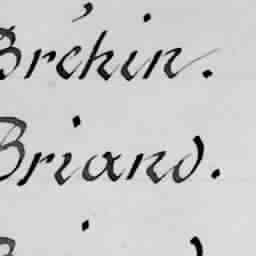 Bréhin.
Briand.